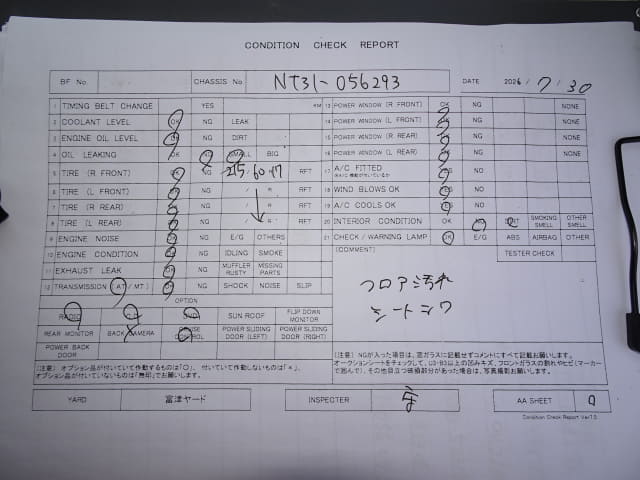 CONDITION CHECK REPORT
BF No. CHASSIS No NT31-056293 DATE 2026 / 7 / 30
1 TIMING BELT CHANGE YES KM
2 COOLANT LEVEL OK NG LEAK
3 ENGINE OIL LEVEL OK NG DIRT
4 OIL LEAKING OK NG SMALL BIG
5 TIRE (R FRONT) OK NG 215/60 R17 RFT
6 TIRE (L FRONT) OK NG / R RFT
7 TIRE (R REAR) OK NG / R RFT
8 TIRE (L REAR) OK NG / R RFT
9 ENGINE NOISE OK NG E/G OTHERS
10 ENGINE CONDITION OK NG IDLING SMOKE
11 EXHAUST LEAK OK NG MUFFLER RUSTY MISSING PARTS
12 TRANSMISSION (AT/MT) OK NG SHOCK NOISE SLIP
13 POWER WINDOW (R FRONT) OK NG NONE
14 POWER WINDOW (L FRONT) OK NG NONE
15 POWER WINDOW (R REAR) OK NG NONE
16 POWER WINDOW (L REAR) OK NG NONE
17 A/C FITTED YES NO
18 WIND BLOWS OK YES NO
19 A/C COOLS OK YES NO
20 INTERIOR CONDITION OK NG DIRT SMOKING SMELL OTHER SMELL
21 CHECK/WARNING LAMP OK E/G ABS AIRBAG OTHER
(COMMENT) TESTER CHECK
フロア汚れ
シートシワ
OPTION
RADIO CD DVD SUN ROOF FLIP DOWN MONITOR
REAR MONITOR BACK CAMERA CRUISE CONTROL POWER SLIDING DOOR (LEFT) POWER SLIDING DOOR (RIGHT)
POWER BACK DOOR
(注意) オプション品が付いていて作動するものは「○」、付いていて作動しないものは「×」、
オプション品が付いていないものは「無印」でお願いします。
(注意) NGが入った場合は、窓ガラスに記載せずコメントにすべて記載お願いします。
オークションシートをチェックして、U3・B3以上の凹みキズ、フロントガラスの割れやヒビ(マーカー
で囲んで)、その他目立つ破損部分があった場合は、写真撮影お願いします。
YARD 富津ヤード INSPECTER AA SHEET
Condition Check Report Ver7.0